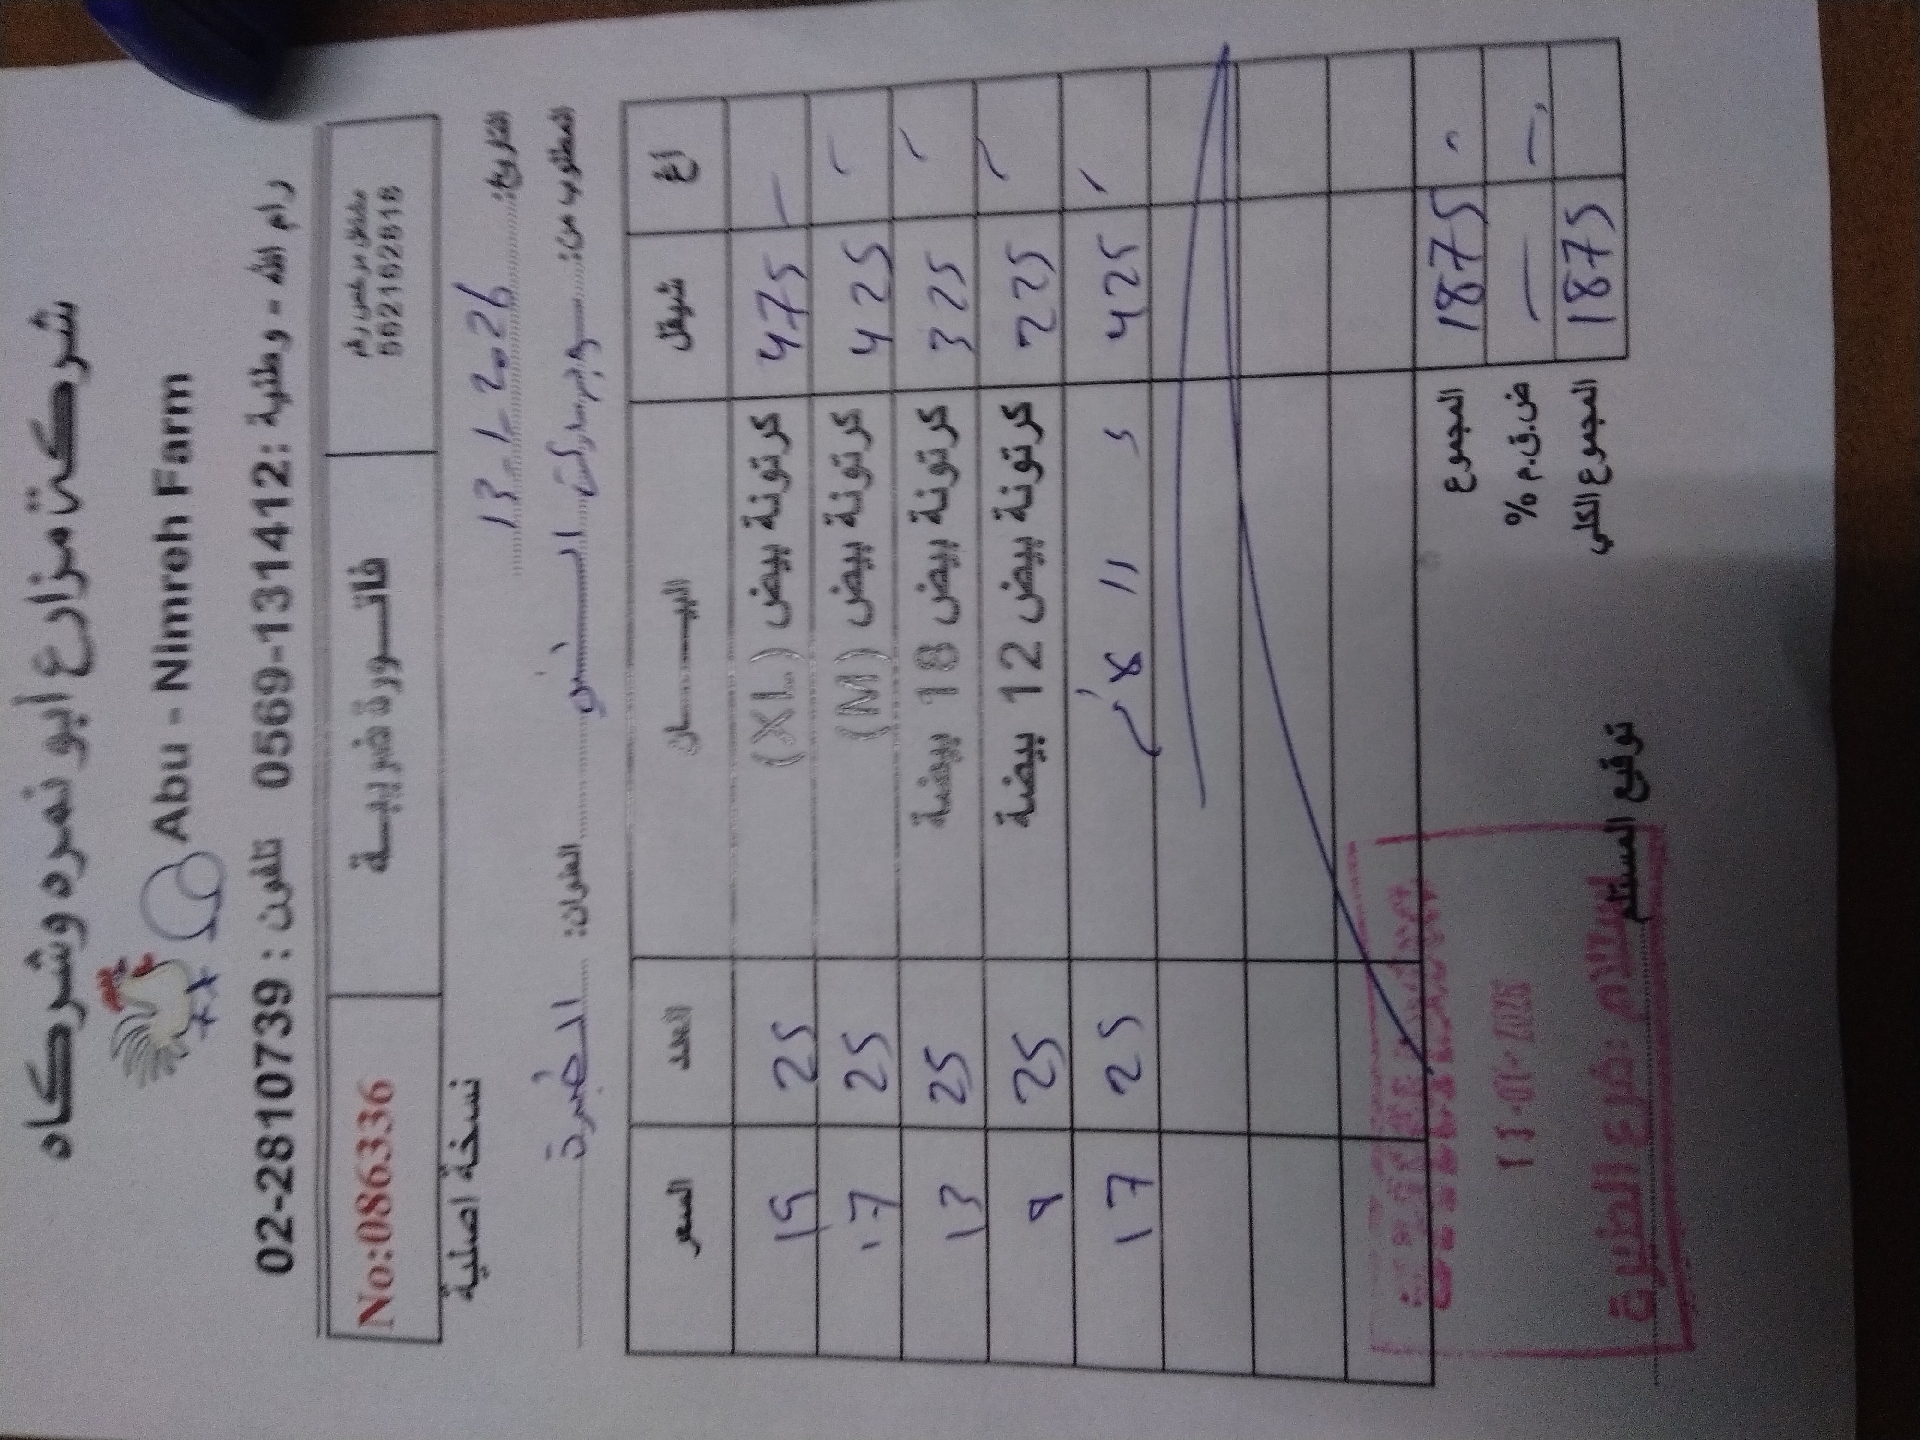 شركة مزارع أبو نمره وشركاه
Abu - Nimreh Farm
رام الله - وطنية : 0569-131412 تلفون : 02-2810739
مشتغل مرخص رقم
562162618
فاتـــورة ضريبيـــة
No:086336
نسخة اصلية
التاريخ: 13-1-2026
المطلوب من: سوبرماركت العنوان:
اغ شيقل البيـــــــان العدد السعر
- 475 كرتونة بيض (XL) 25 19
- 425 كرتونة بيض (M) 25 17
- 325 كرتونة بيض 18 بيضة 25 13
- 225 كرتونة بيض 12 بيضة 25 9
- 425 25 17
المجموع 1875 -
ض.ق.م % - -
المجموع الكلي 1875
توقيع المستلم
استلام :فرع الطيرة